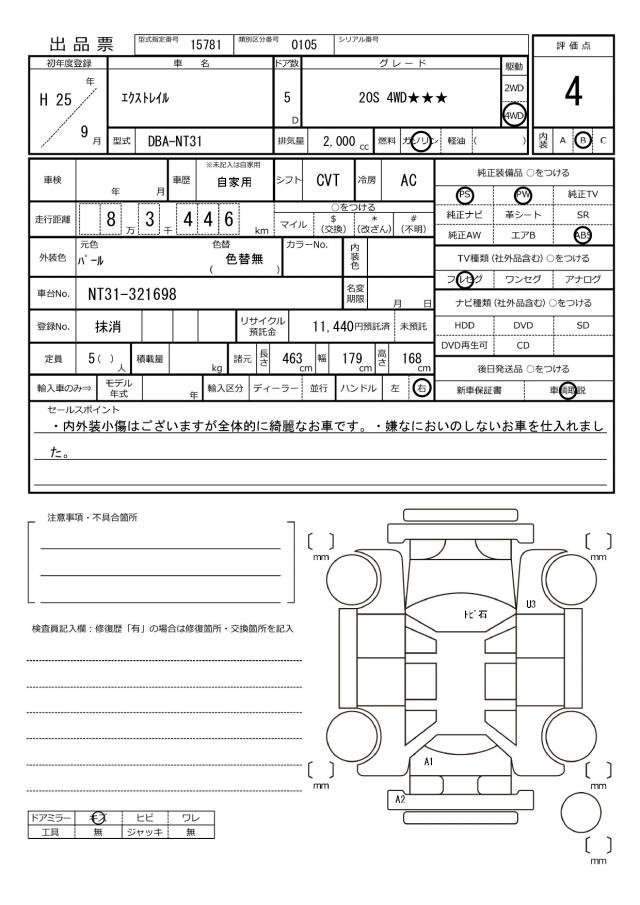 出品票
型式指定番号 15781 類別区分番号 0105 シリアル番号
評価点
4
内装 A B C
初年度登録 車名 ドア数 グレード 駆動
H 25 年 9 月
エクストレイル 5 D 20S 4WD★★★
2WD
4WD
型式 DBA-NT31 排気量 2,000 cc 燃料 ガソリン 軽油 ( )
車検 年 月 車歴 ※未記入は自家用 自家用 シフト CVT 冷房 AC
走行距離 8 万 3 千 4 4 6 km
○をつける
マイル $ (交換) * (改ざん) # (不明)
外装色 元色 パール 色替 ( 色替無 ) カラーNo. 内装色
車台No. NT31-321698 名変期限 月 日
登録No. 抹消 リサイクル預託金 11,440円預託済 未預託
定員 5 ( ) 人 積載量 kg 諸元 長さ 463 cm 幅 179 cm 高さ 168 cm
輸入車のみ⇒ モデル年式 年 輸入区分 ディーラー 並行 ハンドル 左 右
純正装備品 ○をつける
PS PW 純正TV
純正ナビ 革シート SR
純正AW エアB ABS
TV種類(社外品含む) ○をつける
フルセグ ワンセグ アナログ
ナビ種類(社外品含む) ○をつける
HDD DVD SD
DVD再生可 CD
後日発送品 ○をつける
新車保証書 車輌取説
セールスポイント
・内外装小傷はございますが全体的に綺麗なお車です。・嫌なにおいのしないお車を仕入れまし
た。
注意事項・不具合箇所
検査員記入欄：修復歴「有」の場合は修復箇所・交換箇所を記入
ドアミラー キズ ヒビ ワレ
工具 無 ジャッキ 無
〔 〕 mm
〔 〕 mm
トビ石
U3
A1
A2
〔 〕 mm
〔 〕 mm
〔 〕 mm